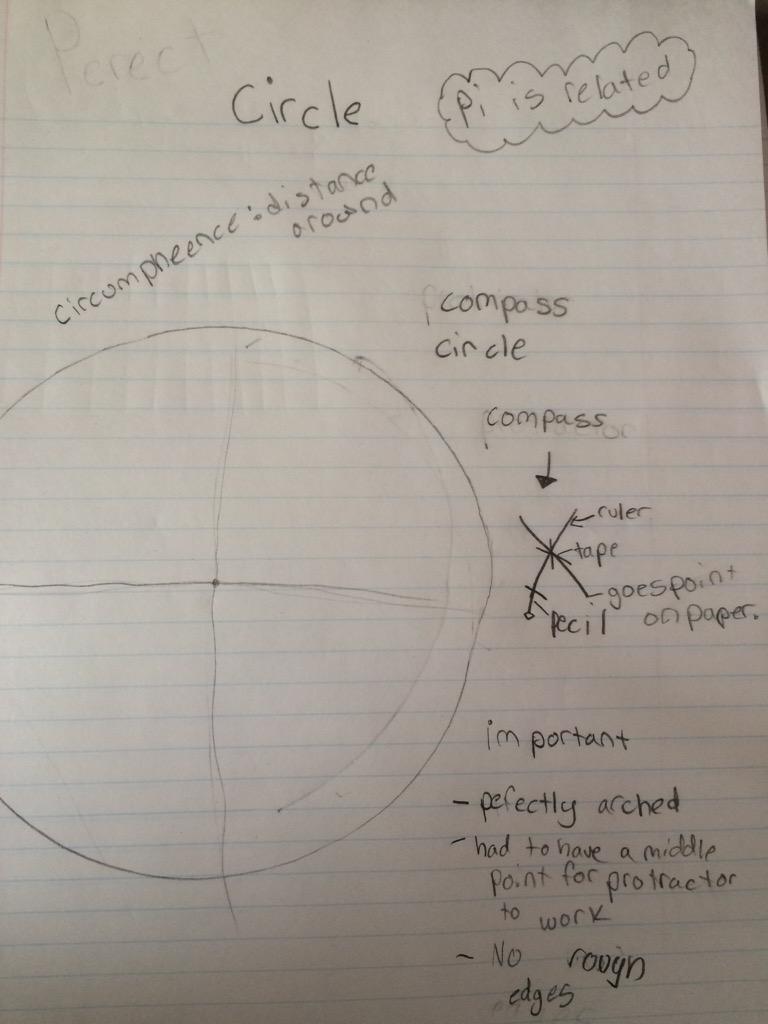 Perect
Circle
Pi is related
circompheence: distance
around
compass
circle
compass
ruler
tape
goes point
on paper.
pecil
important
- pefectly arched
- had to have a middle
point for protractor
to work
- No rough
edges